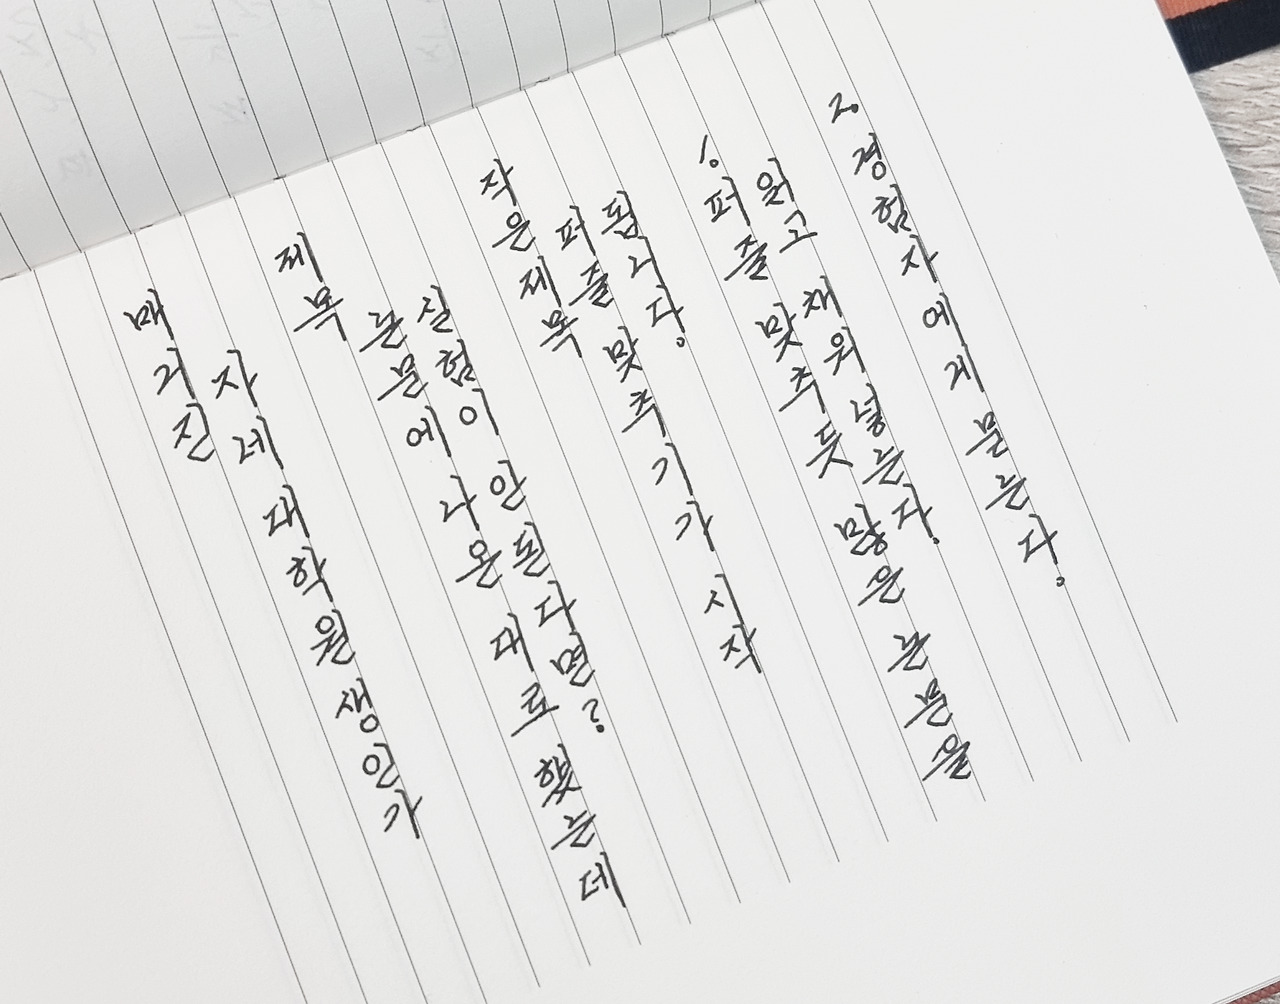 매거진
자네 대학원생인가
제목
논문에 나온 대로 했는데
실험이 안 된다면?
작은제목
퍼즐 맞추기가 시작
됩니다.
1. 퍼즐 맞추듯 많은 논문을
읽고 채워 넣는다.
2. 경험자에게 묻는다.